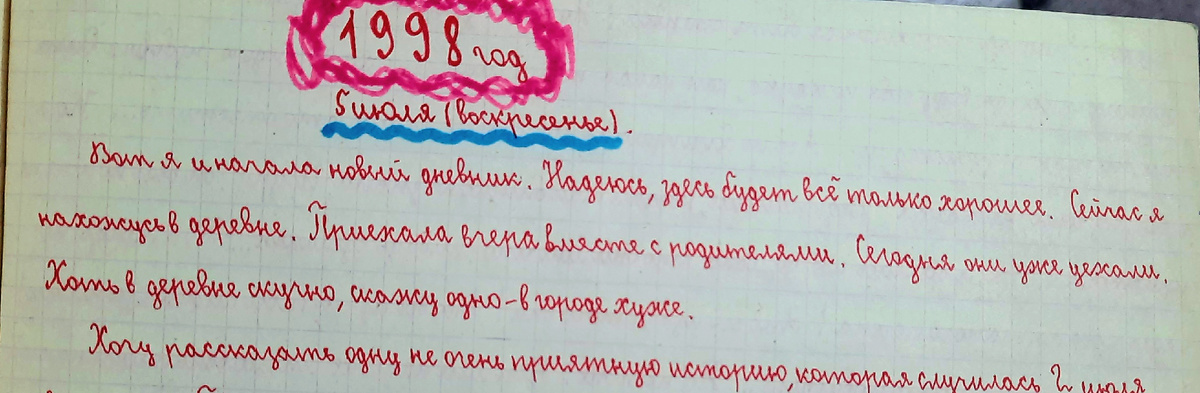 1998 год
5 июля (воскресенье).
Вот я и начала новый дневник. Надеюсь, здесь будет всё только хорошее. Сейчас я
нахожусь в деревне. Приехала вчера вместе с родителями. Сегодня они уже уехали.
Хоть в деревне скучно, скажу одно - в городе хуже.
Хочу рассказать одну не очень приятную историю, которая случилась 2 июля